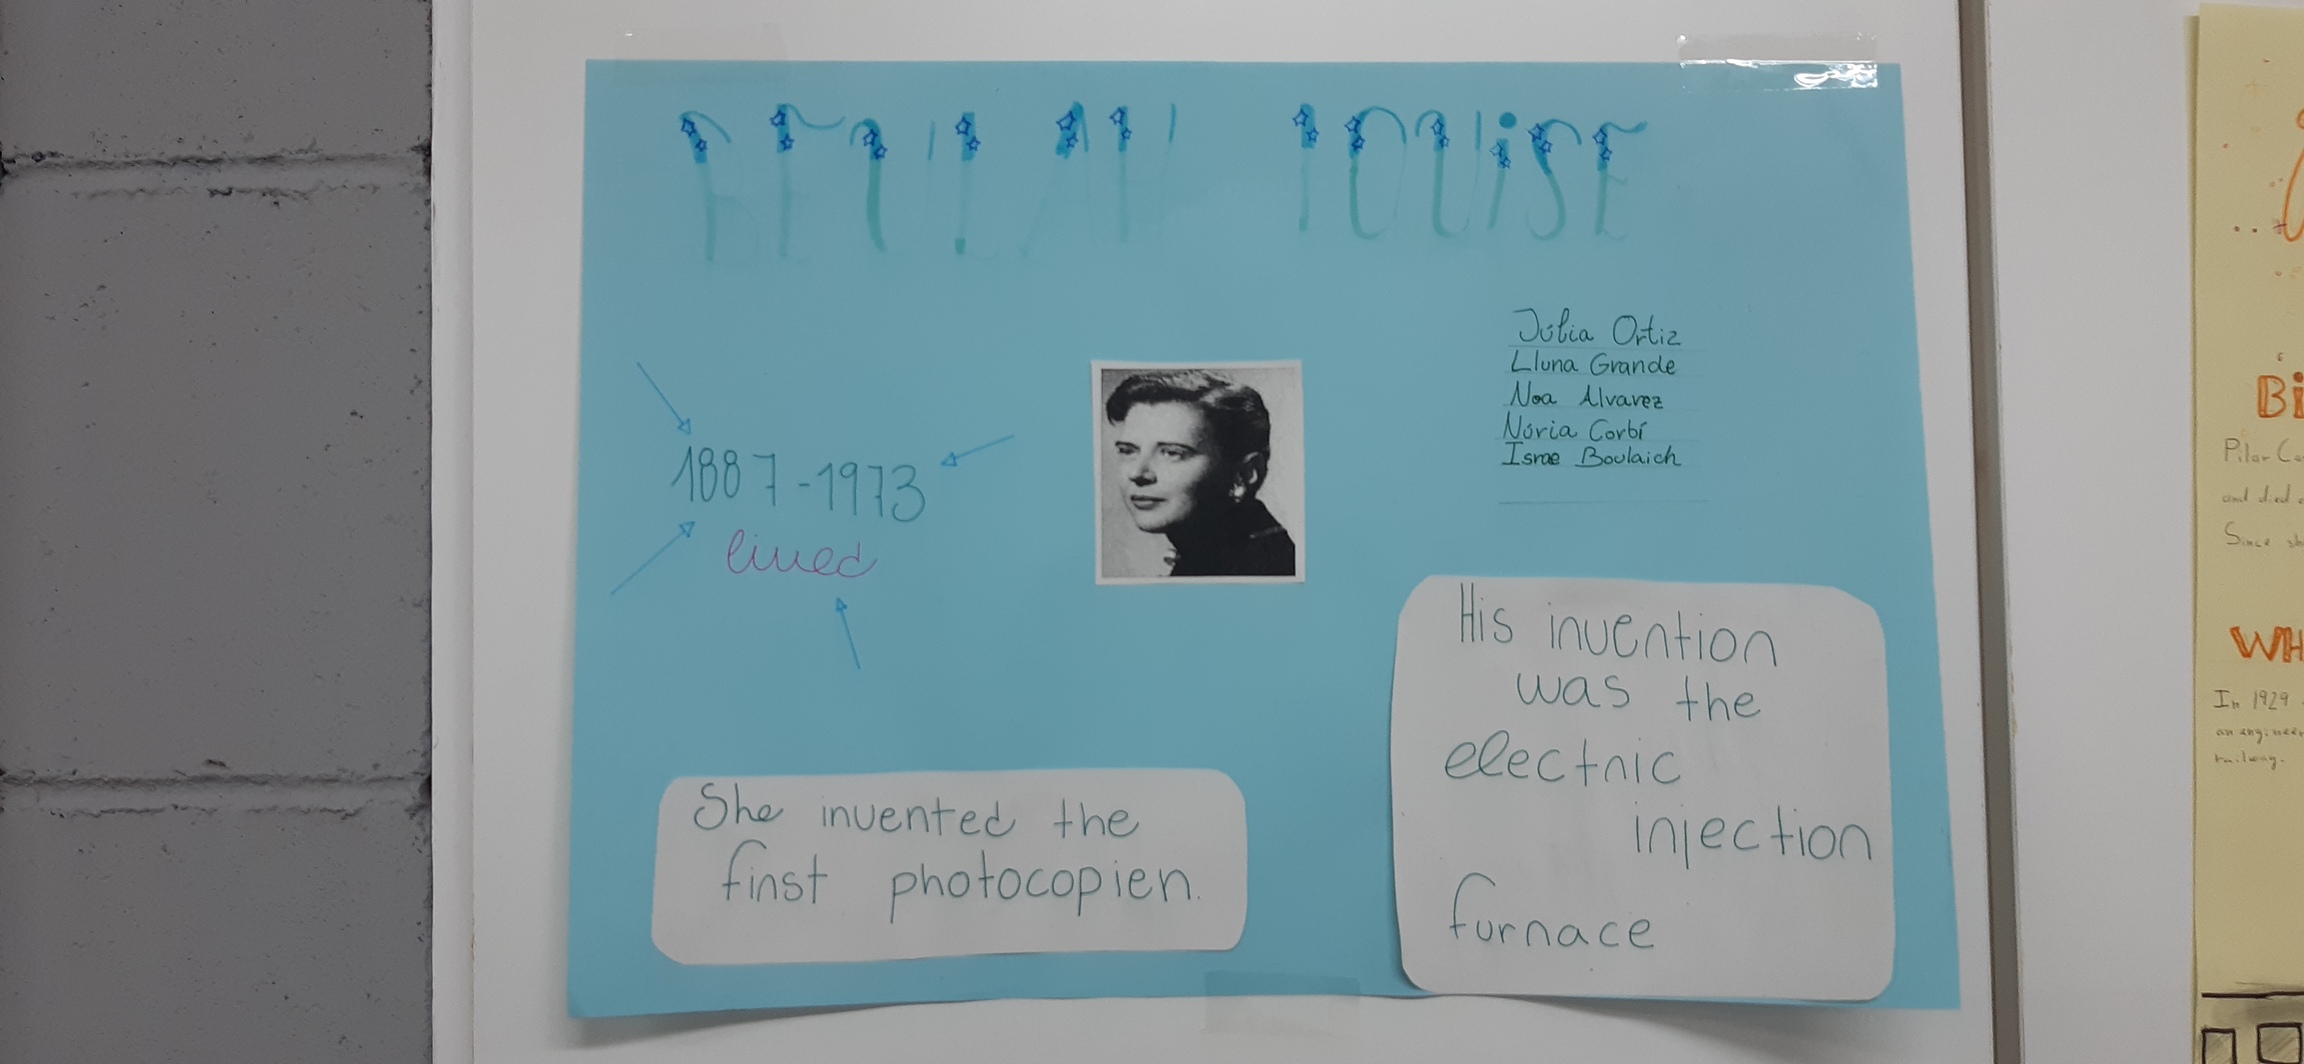 BEULAH LOUISE
Júlia Ortiz
Lluna Grande
Noa Alvarez
Núria Corbí
Israe Boulaich
1887-1973
lived
His invention
was the
electric
injection
furnace
She invented the
first photocopier.
Bi
Pilar
and died
Since
WH
In 1929
an engineer
railway.